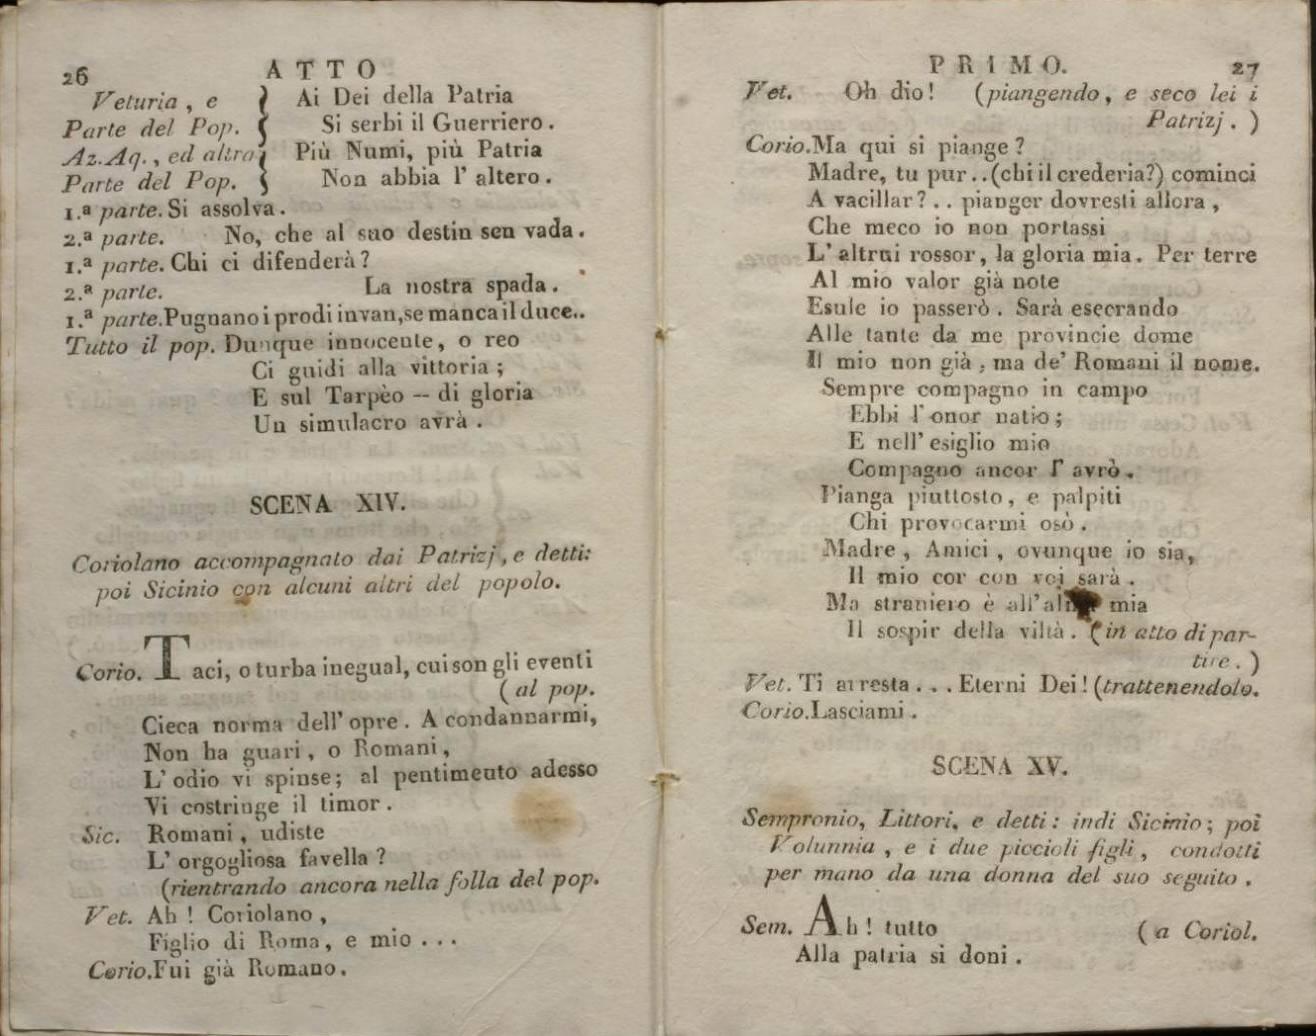 26 ATTO
Veturia, e } Ai Dei della Patria
Parte del Pop. } Si serbi il Guerriero.
Az. Aq., ed altra } Più Numi, più Patria
Parte del Pop. } Non abbia l' altero.
1.ª parte. Si assolva.
2.ª parte. No, che al suo destin sen vada.
1.ª parte. Chi ci difenderà?
2.ª parte. La nostra spada.
1.ª parte. Pugnano i prodi invan, se manca il duce..
Tutto il pop. Dunque innocente, o reo
Ci guidi alla vittoria;
E sul Tarpèo -- di gloria
Un simulacro avrà.
SCENA XIV.
Coriolano accompagnato dai Patrizj, e detti:
poi Sicinio con alcuni altri del popolo.
Corio. Taci, o turba inegual, cui son gli eventi
(al pop.
Cieca norma dell' opre. A condannarmi,
Non ha guari, o Romani,
L' odio vi spinse; al pentimento adesso
Vi costringe il timor.
Sic. Romani, udiste
L' orgogliosa favella?
(rientrando ancora nella folla del pop.
Vet. Ah! Coriolano,
Figlio di Roma, e mio ...
Corio. Fui già Romano.
PRIMO. 27
Vet. Oh dio! (piangendo, e seco lei i
Patrizj.)
Corio. Ma qui si piange?
Madre, tu pur..(chi il crederia?) cominci
A vacillar?.. pianger dovresti allora,
Che meco io non portassi
L' altrui rossor, la gloria mia. Per terre
Al mio valor già note
Esule io passerò. Sarà esecrando
Alle tante da me provincie dome
Il mio non già, ma de' Romani il nome.
Sempre compagno in campo
Ebbi l' onor natio;
E nell' esiglio mio
Compagno ancor l' avrò.
Pianga piuttosto, e palpiti
Chi provocarmi osò.
Madre, Amici, ovunque io sia,
Il mio cor con voi sarà.
Ma straniero è all' alma mia
Il sospir della viltà. (in atto di par-
tire.)
Vet. Ti arresta... Eterni Dei! (trattenendolo.
Corio. Lasciami.
SCENA XV.
Sempronio, Littori, e detti: indi Sicinio; poi
Volunnia, e i due piccioli figli, condotti
per mano da una donna del suo seguito.
Sem. Ah! tutto (a Coriol.
Alla patria si doni.